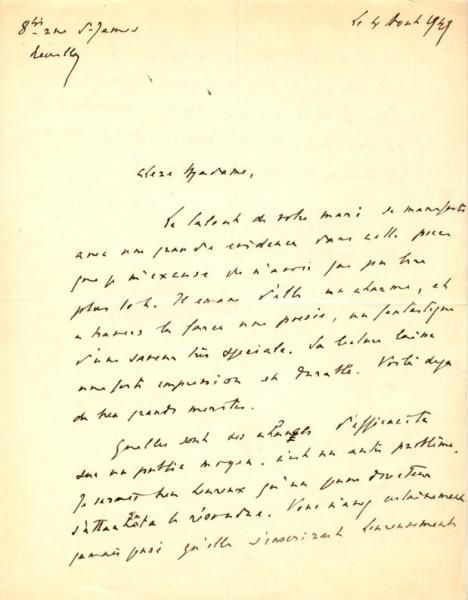 8 bis rue St-James
Neuilly
Le 4 Aout 1949
Chère Madame,
Le talent de votre mari se manifeste
avec une grande évidence dans cette pièce
que je m'excuse de n'avoir que pu lire
plus tôt. Il émane d'elle un charme, et
à travers la farce une poésie, un fantastique
d'une saveur très spéciale. Sa lecture laisse
une forte impression et durable. Voilà déjà
de bien grands mérites.
Quelles sont ses chances d'efficacité
sur un public moyen. c'est un autre problème.
Je serais bien heureux qu'un jeune directeur
s'attachât à le résoudre. Vous n'avez certainement
jamais pensé qu'elle s'inscrirait heureusement